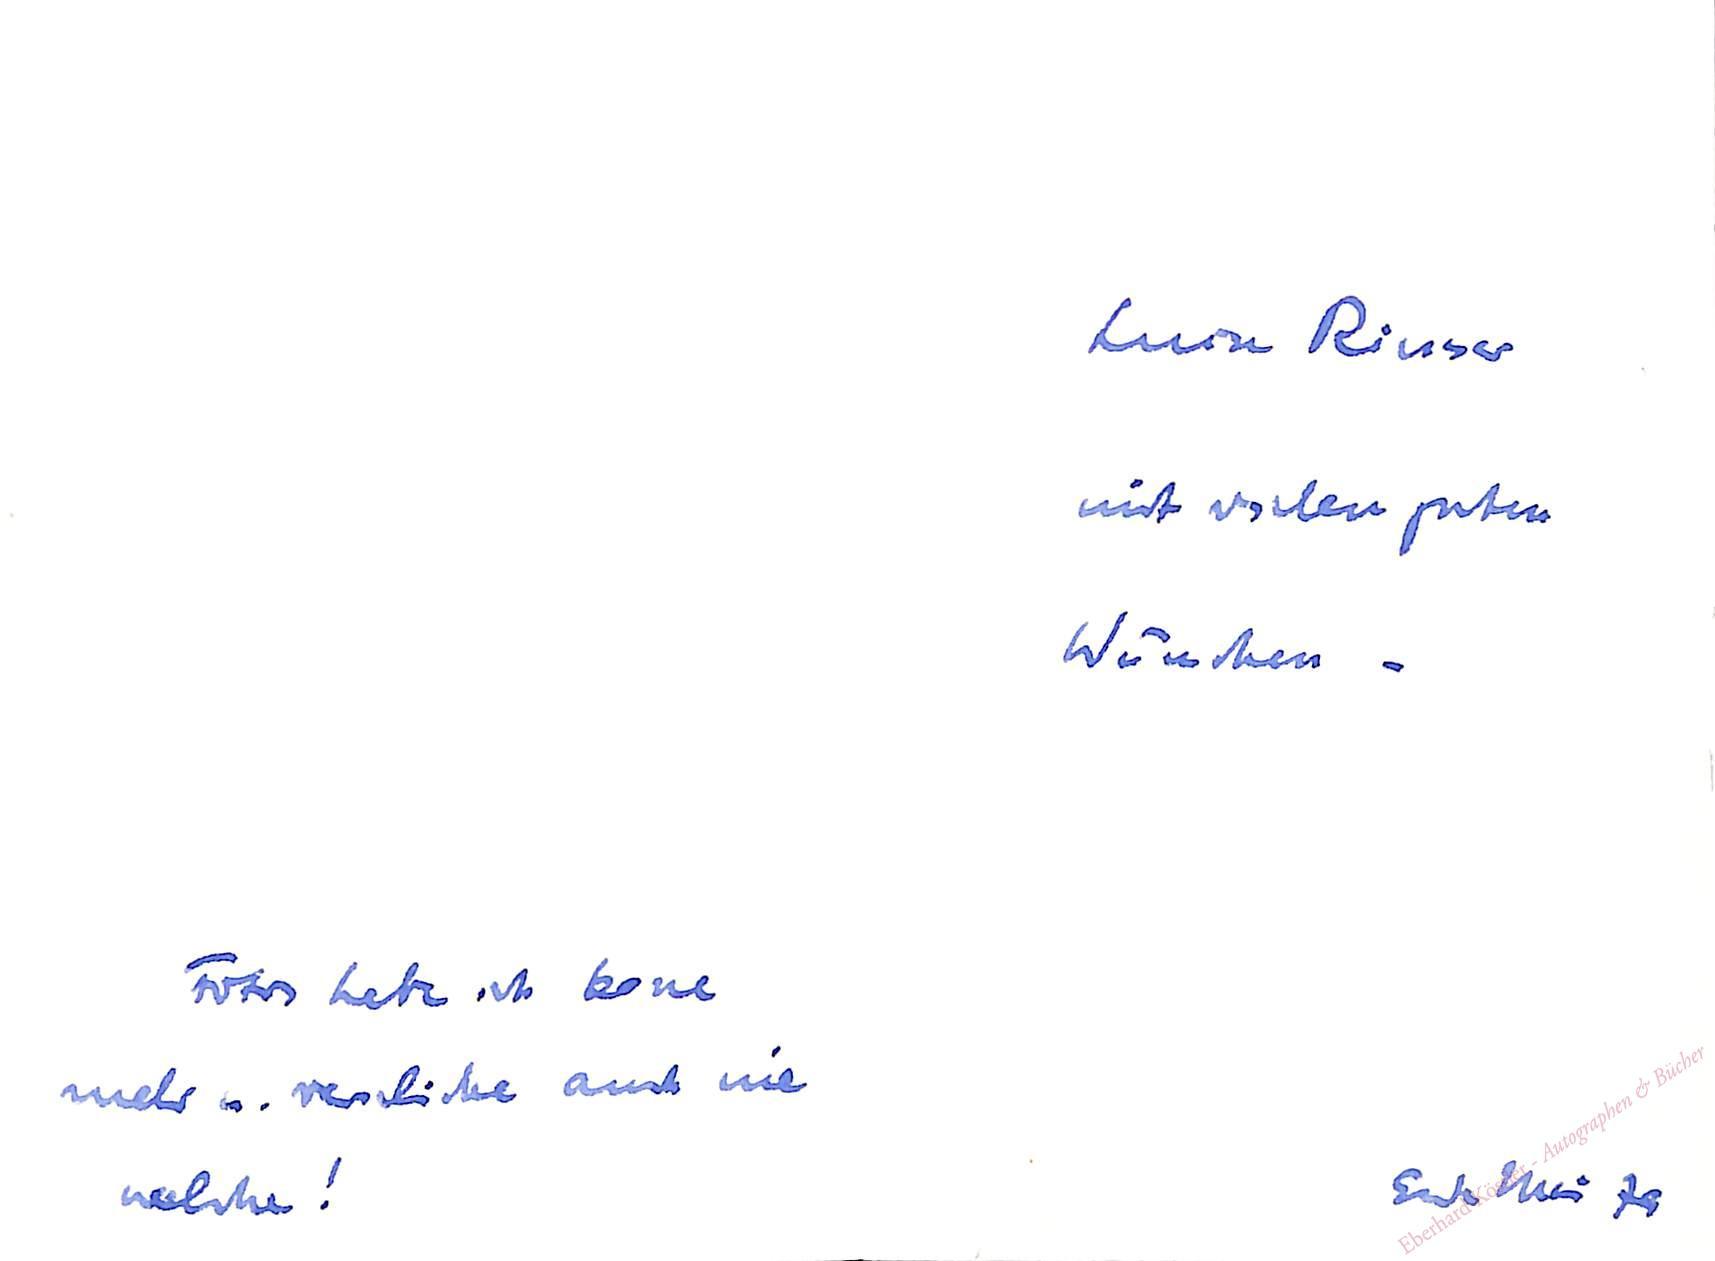 Luise Rinser
mit vielen guten
Wünschen -
Fotos habe ich keine
mehr u. verschicke auch nie
welche!
Ende Mai 79
Eberhard Köstler - Autographen & Bücher